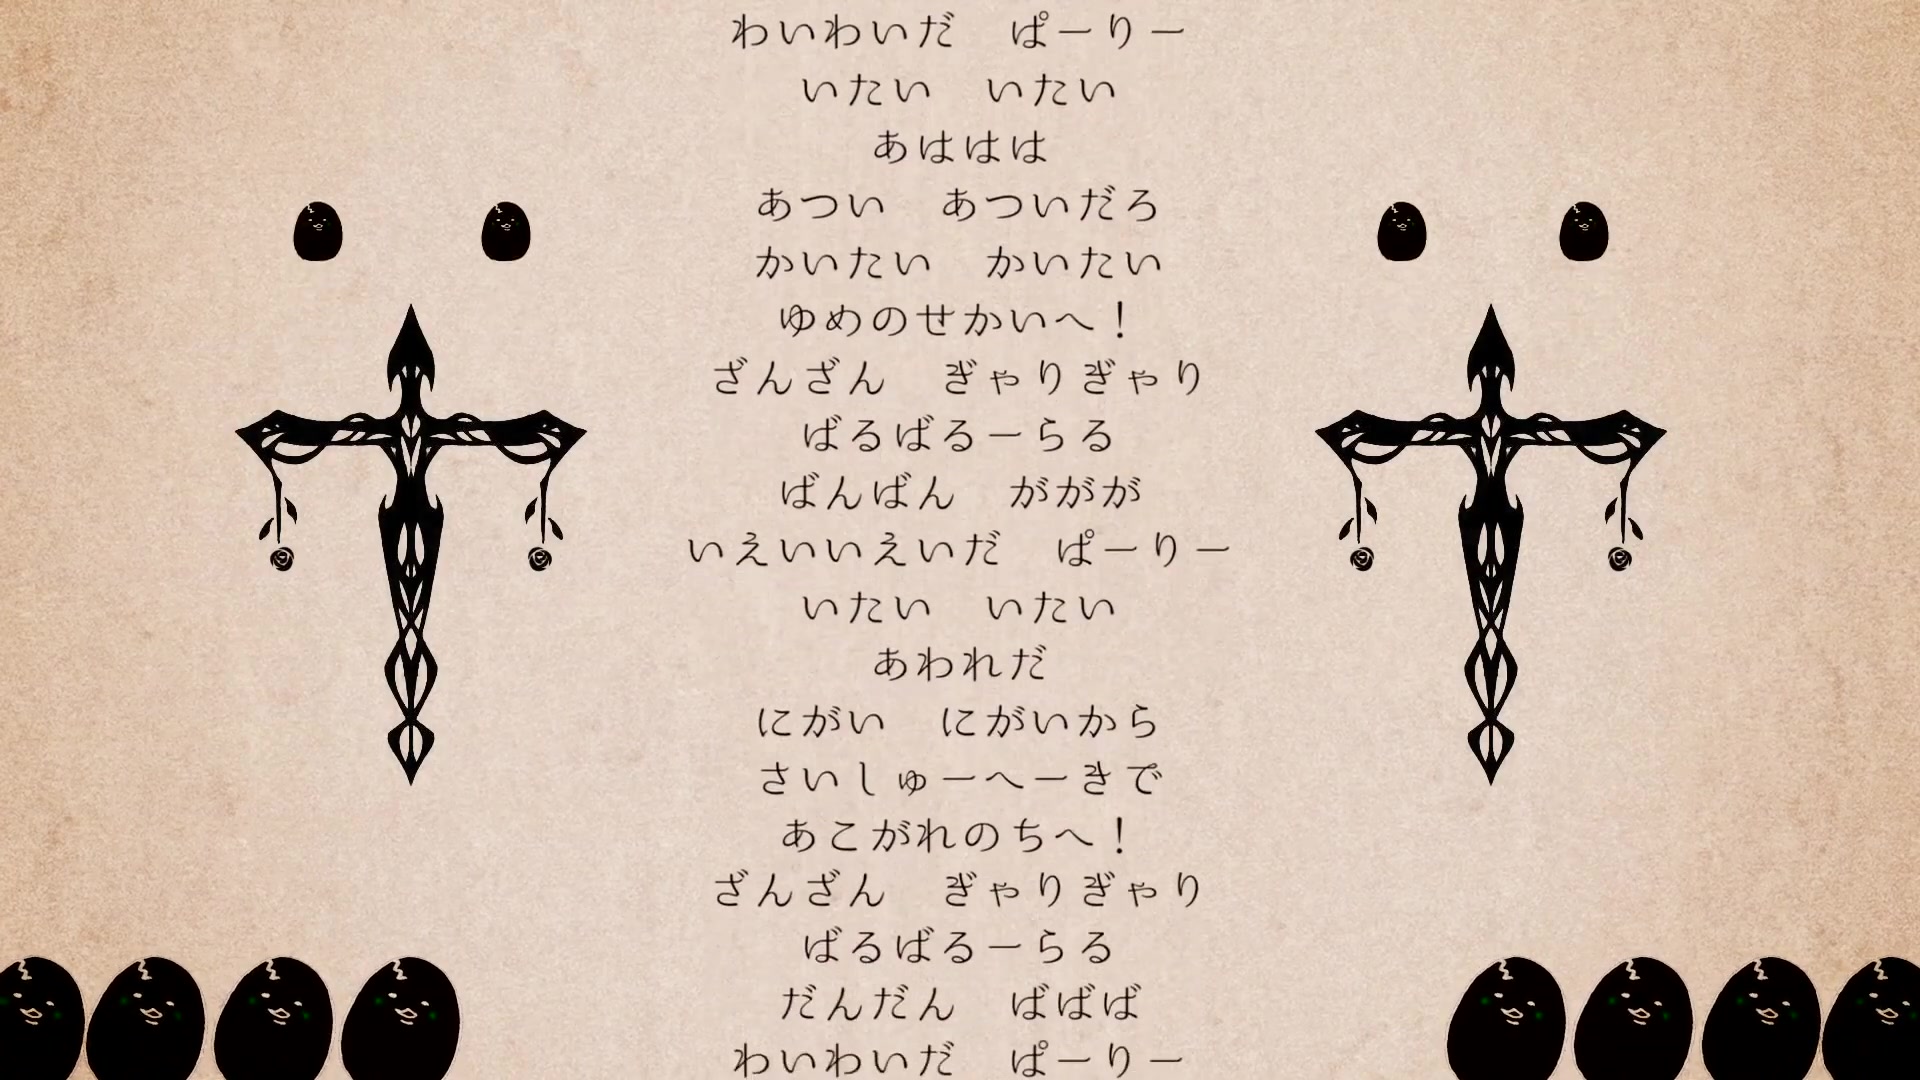 わいわいだ　ぱーりー
いたい　いたい
あははは
あつい　あついだろ
かいたい　かいたい
ゆめのせかいへ！
ざんざん　ぎゃりぎゃり
ばるばるーらる
ばんばん　ががが
いえいいえいだ　ぱーりー
いたい　いたい
あわれだ
にがい　にがいから
さいしゅーへーきで
あこがれのちへ！
ざんざん　ぎゃりぎゃり
ばるばるーらる
だんだん　ばばば
わいわいだ　ぱーりー